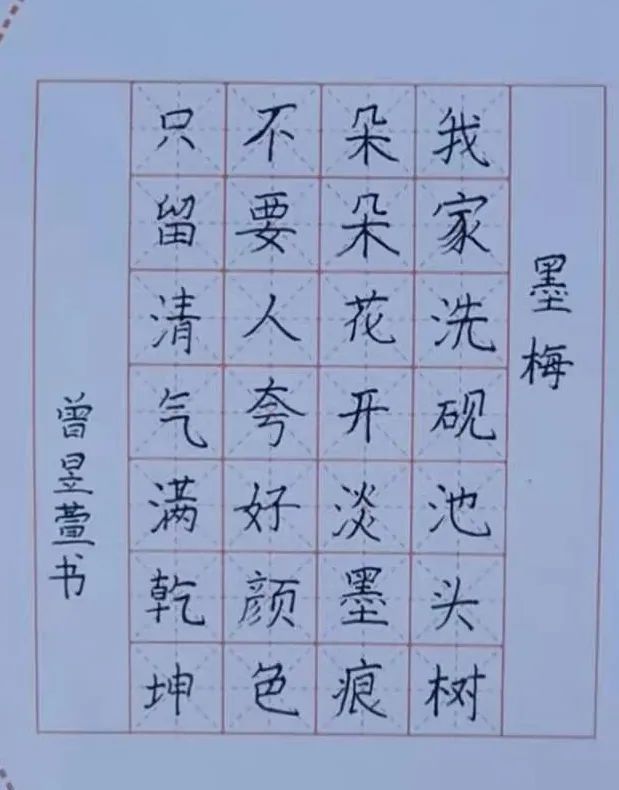 墨梅
我家洗砚池头树
朵朵花开淡墨痕
不要人夸好颜色
只留清气满乾坤
曾昱萱书